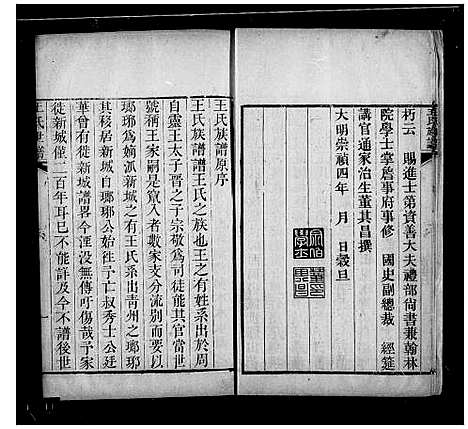 朽云　賜進士第資善大夫禮部尙書兼翰林
院學士掌詹事府事修　國史副總裁　經筵
講官通家治生董其昌撰
大明崇禎四年　月　日穀旦
王氏族譜原序
王氏族譜譜王氏之族也王之有姓系出於周
自靈王太子晉之子宗敬爲司徒能其官當世
號稱王家嗣是竄入者數家支分流別而要以
瑯琊爲嫡派新城之有王氏系出靑州之瑯琊
其移居新城自瑯琊公始徃予亡叔秀士公廷
華曾有徙新城譜畧今湮没呼可傷哉予家
徙新城僅二百年耳已不能詳及今不譜後世
王氏世譜